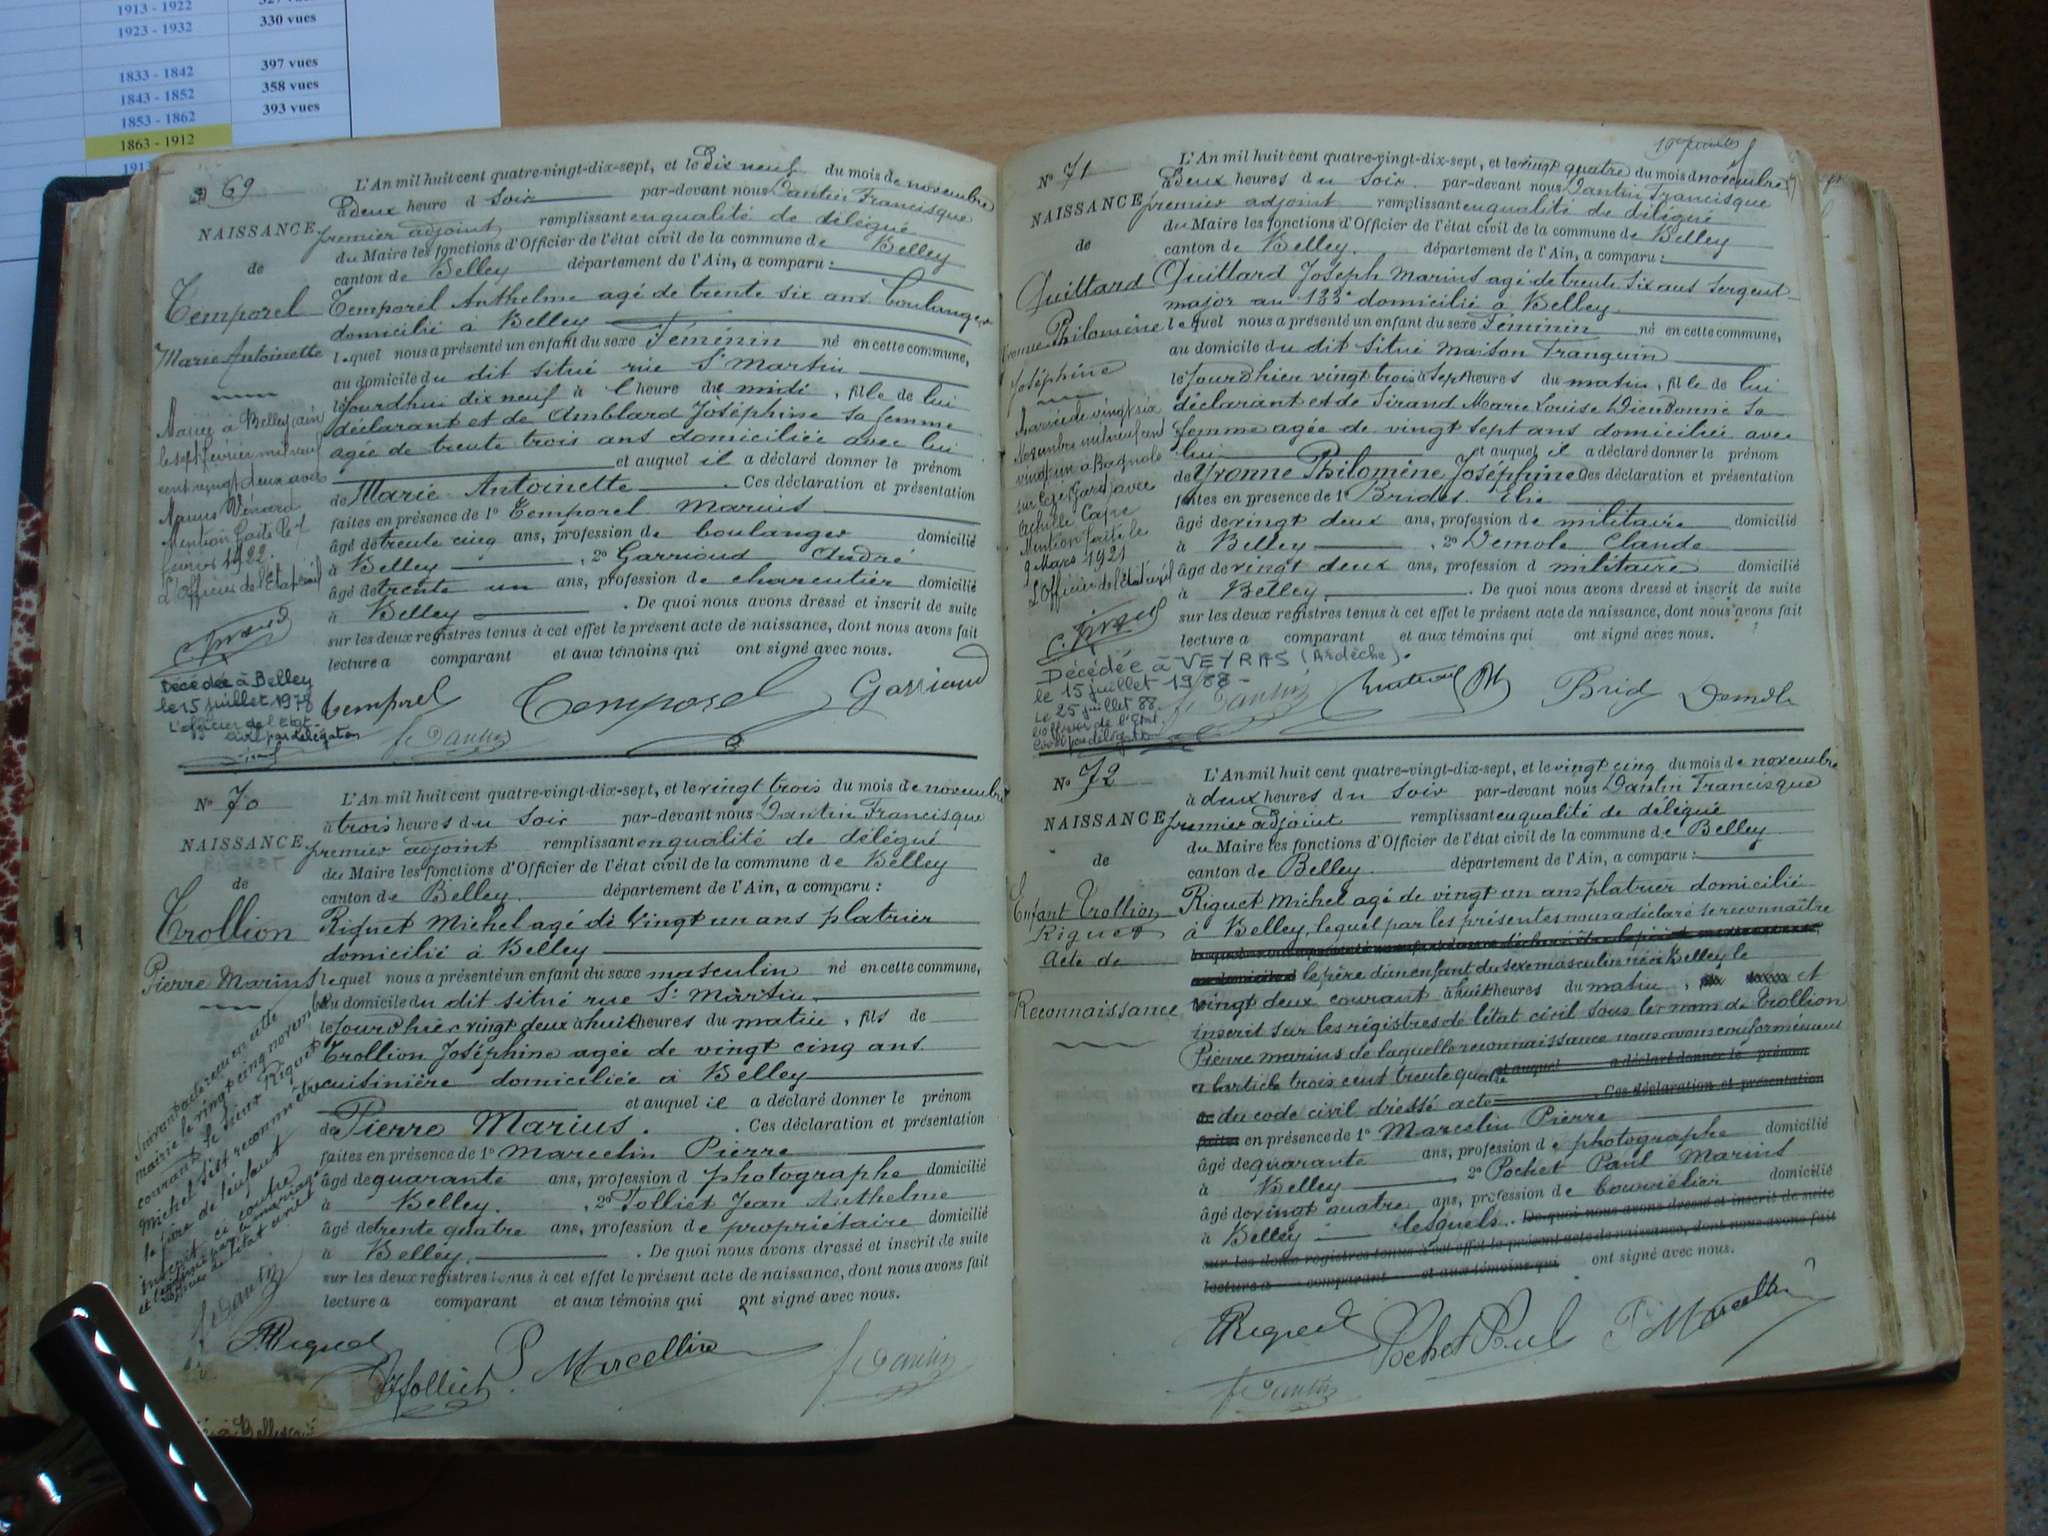 1913 - 1922
327 vues
1923 - 1932
330 vues
1833 - 1842
397 vues
1843 - 1852
358 vues
1853 - 1862
393 vues
1863 - 1912
69
NAISSANCE
de
Temporel
Marie Antoinette
Mariée à Belley (ain)
le sept février mil neuf
cent vingt deux avec
Marius Vénard
Mention faite le 7
février 1922
L'Officier de l'Etat civil
Décédée à Belley
le 15 juillet 1978
L'officier de l'Etat
civil par délégation
L'An mil huit cent quatre-vingt-dix-sept, et le dix neuf du mois de novembre
à deux heure d soir par-devant nous Dantin Francisque
premier adjoint remplissant en qualité de délégué
du Maire les fonctions d'Officier de l'état civil de la commune de Belley
canton de Belley département de l'Ain, a comparu :
Temporel Anthelme agé de trente six ans boulanger
domicilié à Belley
lequel nous a présenté un enfant du sexe Féminin né en cette commune,
au domicile du dit situé rue St Martin
le jourdhui dix neuf à l heure du midi, fille de lui
déclarant et de Amblard Joséphine sa femme
agée de trente trois ans domiciliée avec lui
et auquel il a déclaré donner le prénom
de Marie Antoinette. Ces déclaration et présentation
faites en présence de 1º Temporel Marius
âgé de trente cinq ans, profession de boulanger domicilié
à Belley, 2º Garrioud André
âgé de trente un ans, profession de charcutier domicilié
à Belley. De quoi nous avons dressé et inscrit de suite
sur les deux registres tenus à cet effet le présent acte de naissance, dont nous avons fait
lecture a comparant et aux témoins qui ont signé avec nous.
Temporel Temporel Garrioud
fr Dantin
Nº 70
NAISSANCE
de
Trollion
Pierre Marius
Suivant acte reçu en cette
mairie le vingt cinq novembre
courant le sieur Riguet
Michel s'est reconnu être
le père de l'enfant
inscrit ci contre
fr Dantin
L'An mil huit cent quatre-vingt-dix-sept, et le vingt trois du mois de novembre
à trois heures du soir par-devant nous Dantin Francisque
premier adjoint remplissant en qualité de délégué
du Maire les fonctions d'Officier de l'état civil de la commune de Belley
canton de Belley département de l'Ain, a comparu :
Riguet Michel agé de vingt un ans platrier
domicilié à Belley
lequel nous a présenté un enfant du sexe masculin né en cette commune,
au domicile du dit situé rue St Martin
le jour d'hier vingt deux à huit heures du matin, fils de
Trollion Joséphine agée de vingt cinq ans
cuisinière domiciliée à Belley
et auquel il a déclaré donner le prénom
de Pierre Marius. Ces déclaration et présentation
faites en présence de 1º Marcelin Pierre
âgé de quarante ans, profession d photographe domicilié
à Belley, 2º Tolliet Jean Anthelme
âgé de trente quatre ans, profession de propriétaire domicilié
à Belley. De quoi nous avons dressé et inscrit de suite
sur les deux registres tenus à cet effet le présent acte de naissance, dont nous avons fait
lecture a comparant et aux témoins qui ont signé avec nous.
MRiguet
Tolliet P. Marcellin fr Dantin
Nº 71
NAISSANCE
de
Quittard
Yvonne Philomène
Joséphine
Mariée le vingt six
Novembre mil neuf cent
vingt un à Bagnols
sur Cèze (Gard) avec
Achille Cape
Mention faite le
9 Mars 1921
L'Officier de l'état civil
Décédée à VEYRAS (Ardèche).
le 15 juillet 1988 -
Le 25 juillet 88
L'An mil huit cent quatre-vingt-dix-sept, et le vingt quatre du mois d novembre
à Deux heures du soir par-devant nous Dantin Francisque
premier adjoint remplissant en qualité de délégué
du Maire les fonctions d'Officier de l'état civil de la commune de Belley
canton de Belley département de l'Ain, a comparu :
Quittard Joseph Marius agé de trente six ans Sergent
major au 133e domicilié à Belley
lequel nous a présenté un enfant du sexe Féminin né en cette commune,
au domicile du dit situé maison Tranquin
le jour d'hier vingt trois à sept heures du matin, fille de lui
déclarant et de Sirand Marie Louise Dieudonné sa
femme agée de vingt sept ans domiciliée avec
lui et auquel il a déclaré donner le prénom
de Yvonne Philomène Joséphine Ces déclaration et présentation
faites en présence de 1º Brides Elie
âgé de vingt deux ans, profession de militaire domicilié
à Belley, 2º Demole Claude
âgé de vingt deux ans, profession d militaire domicilié
à Belley. De quoi nous avons dressé et inscrit de suite
sur les deux registres tenus à cet effet le présent acte de naissance, dont nous avons fait
lecture a comparant et aux témoins qui ont signé avec nous.
fr Dantin Brid Demole
Nº 72
NAISSANCE
de
Enfant Trollion
Riguet
Acte de
Reconnaissance
L'An mil huit cent quatre-vingt-dix-sept, et le vingt cinq du mois de novembre
à deux heures du soir par-devant nous Dantin Francisque
premier adjoint remplissant en qualité de délégué
du Maire les fonctions d'Officier de l'état civil de la commune de Belley
canton de Belley département de l'Ain, a comparu :
Riguet Michel agé de vingt un ans platrier domicilié
à Belley, lequel par les présentes nous a déclaré se reconnaître
le père d'un enfant du sexe masculin né à Belley le
vingt deux courant à huit heures du matin, et
inscrit sur les régistres de l'état civil sous le nom de Trollion
Pierre Marius de laquelle reconnaissance nous avons conformément
a l'article trois cent trente quatre et auquel a déclaré donner le prénom
du code civil dréssé acte. Ces déclaration et présentation
faites en présence de 1º Marcelin Pierre
âgé de quarante ans, profession de photographe domicilié
à Belley, 2º Pochet Paul Marius
âgé de vingt quatre ans, profession de bourrelier domicilié
à Belley lesquels. De quoi nous avons dressé et inscrit de suite
sur les deux registres tenus à cet effet le présent acte de naissance, dont nous avons fait
lecture a comparant et aux témoins qui ont signé avec nous.
MRiguet Pochet Paul P Marcellin
fr Dantin